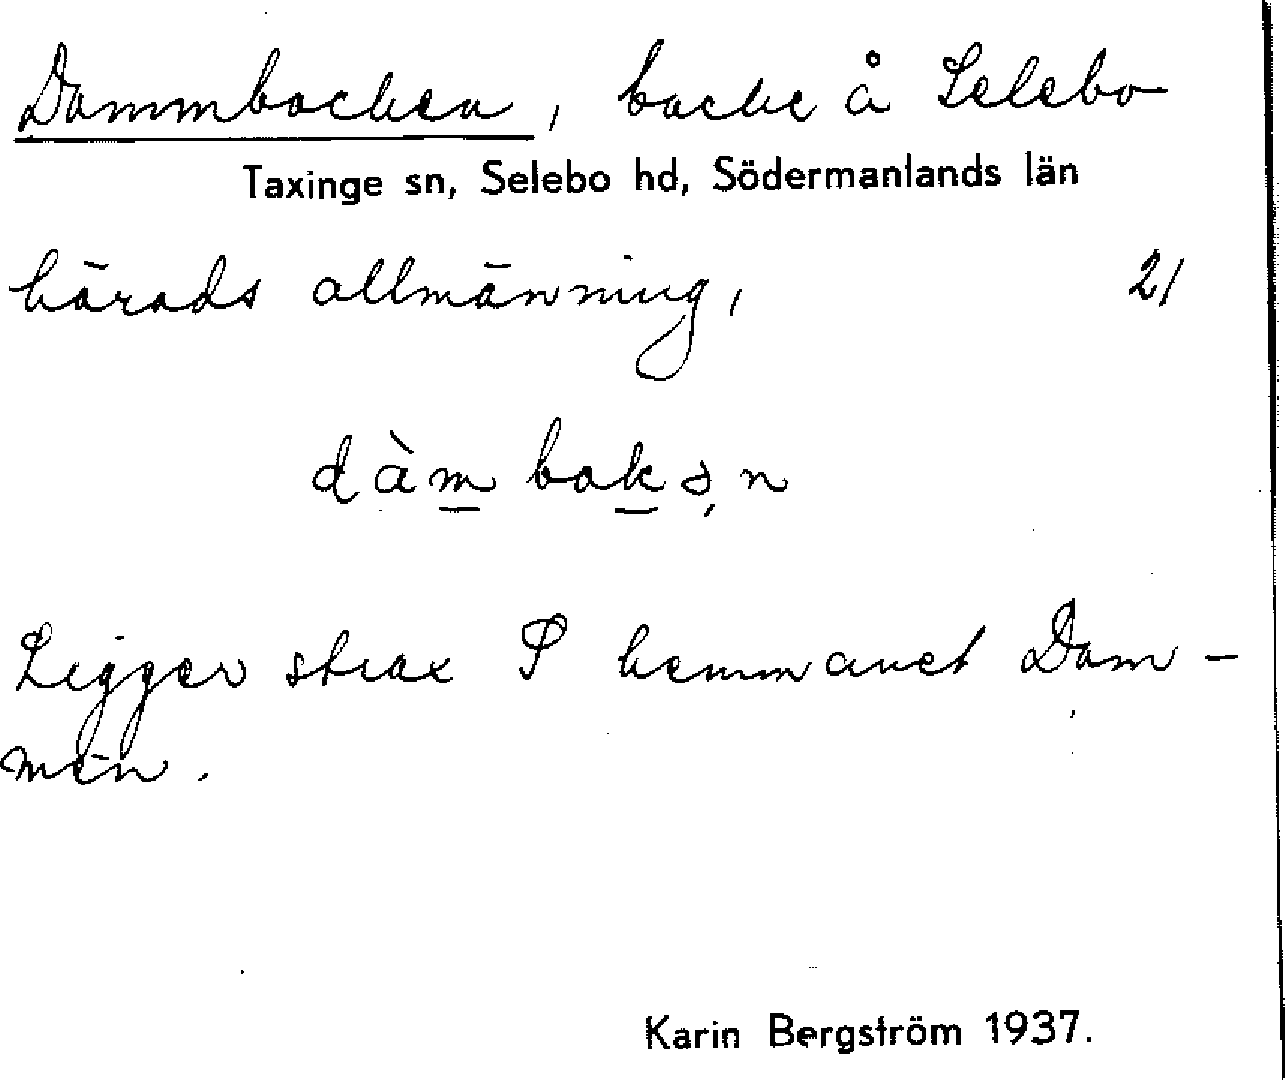 Dammbacken, backe å Selebo
Taxinge sn, Selebo hd, Södermanlands län
härads allmänning, 21
dàm bakən
Ligger strax S hemmanet Dam-
men.
Karin Bergström 1937.